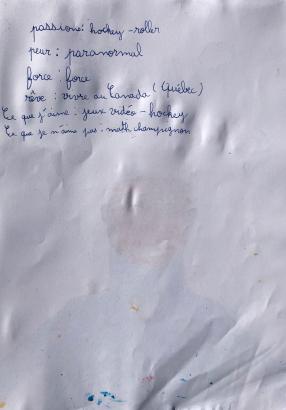 passion: hockey - roller
peur : paranormal
force : force
rêve : vivre au Canada (Québec)
Ce que j'aime : jeux vidéo - hockey
Ce que je n'aime pas : math champignon